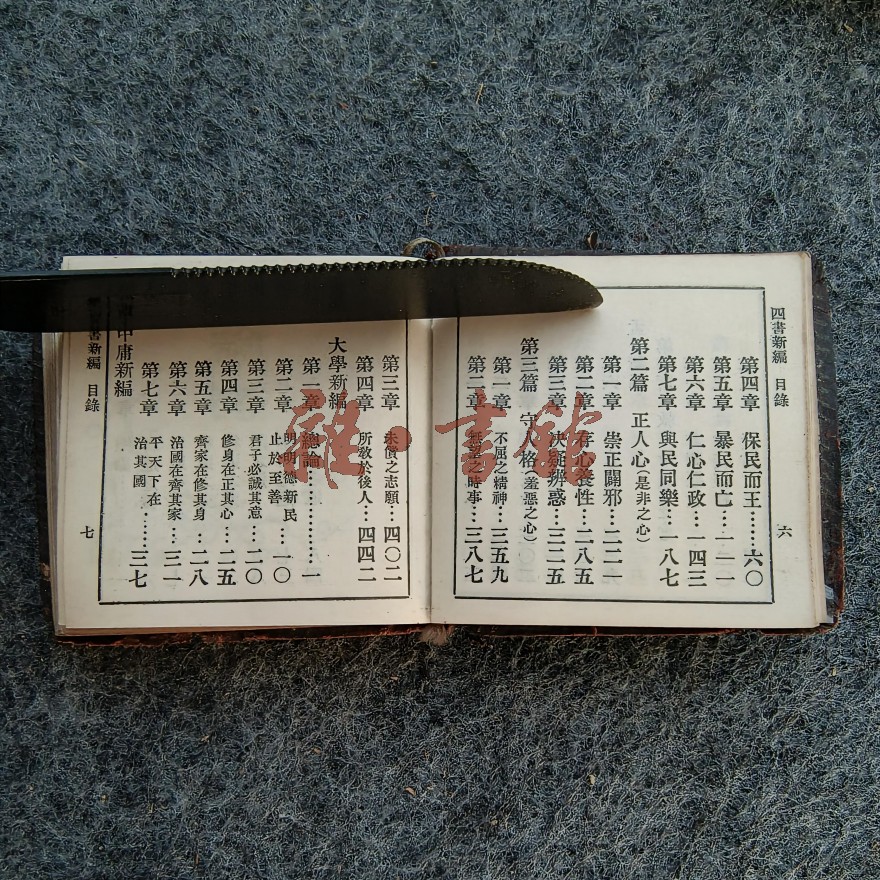 四書新編 目錄
六
第四章 保民而王……六〇
第五章 暴民而亡…一一一
第六章 仁心仁政…一四三
第七章 與民同樂…一八七
第二篇 正人心(是非之心)
第一章 崇正闢邪…二二一
第二章 存心養性…二八五
第三章 決疑辨惑…三二五
第三篇 守人格(羞惡之心)
第一章 不屈之精神…三五九
第二章 無望之時事…三八七
第三章 未償之志願…四〇二
第四章 所教於後人…四四二
大學新編
第一章 總論……………一
第二章 明明德新民止於至善…一〇
第三章 君子必誠其意…二〇
第四章 修身在正其心…二五
第五章 齊家在修其身…二八
第六章 治國在齊其家…三一
第七章 平天下在治其國……三七
中庸新編
書新編 目錄
七
雜·書館